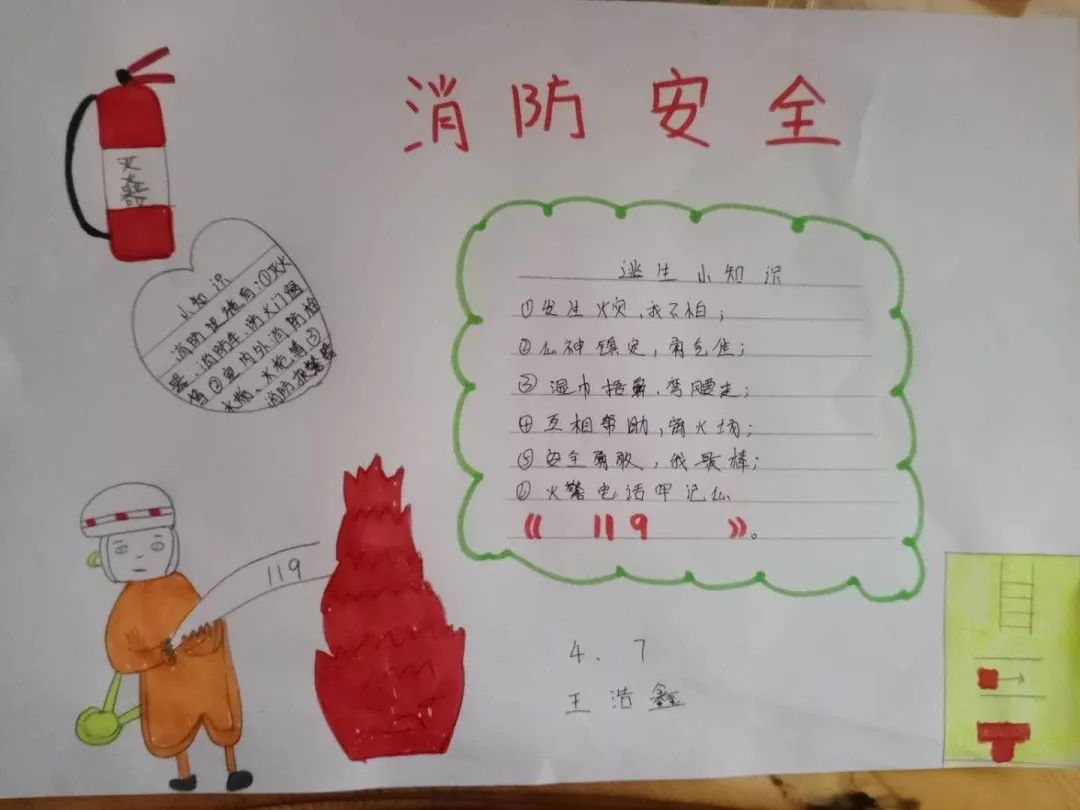 消防安全
灭火器
小知识
消防设施有:①灭火
器、消防车、防火门窗
等②室内外消防栓
水带、水枪等③
消防报警
逃生小知识
①发生火灾,我不怕;
②心神镇定,气佳;
③湿巾捂鼻,弯腰走;
④互相帮助,离火场;
⑤安全勇敢,我最棒;
⑥火警电话牢记心
《 119 》。
119
4.7
王浩鑫